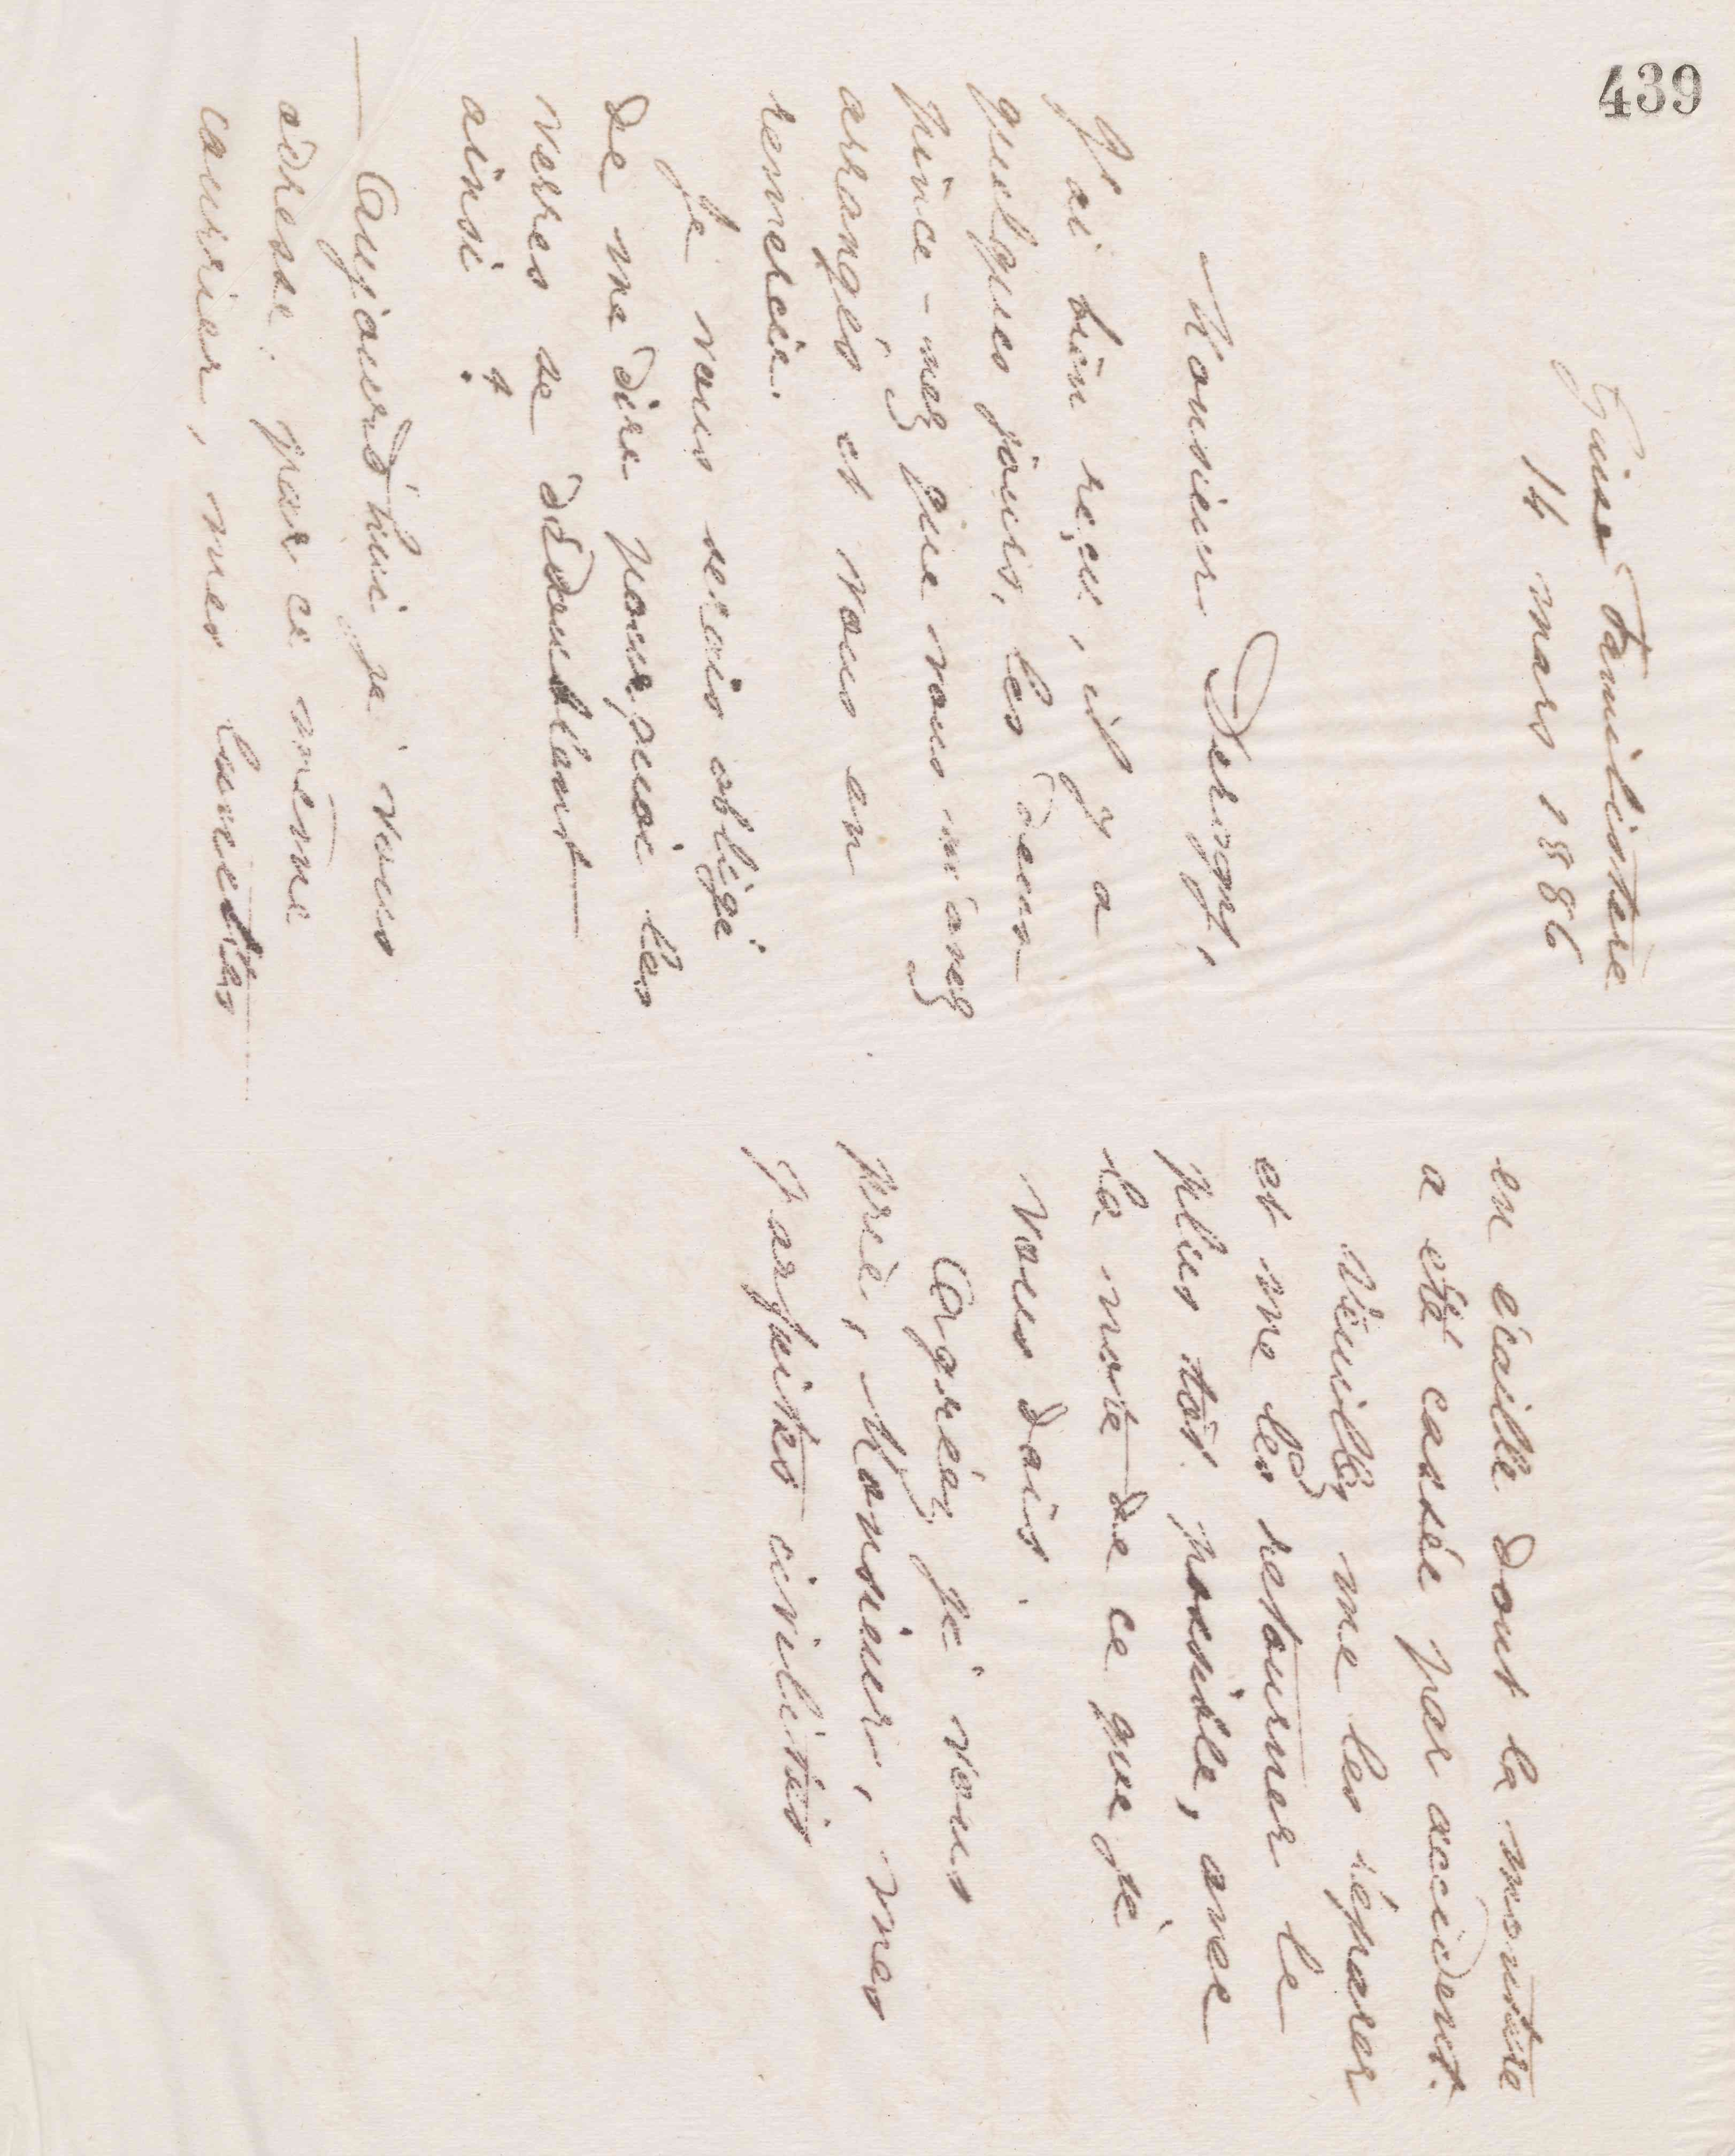 439
Guise Familistère
14 mars 1886
Monsieur Derogy,
J'ai bien reçu, il y a
quelques jours, les deux
pince-nez que vous m'avez
arrangés et vous en
remercie.
Je vous serais obligé
de me dire pourquoi les
verres se dédoublent
ainsi ?
Aujourd'hui je vous
adresse, par ce même
courrier, mes lunettes
en écaille dont la monture
a été cassée par accident.
Veuillez me les réparer
et me les retourner le
plus tôt possible, avec
la note de ce que je
vous dois.
Agréez, je vous
prie, Monsieur, mes
parfaites civilités